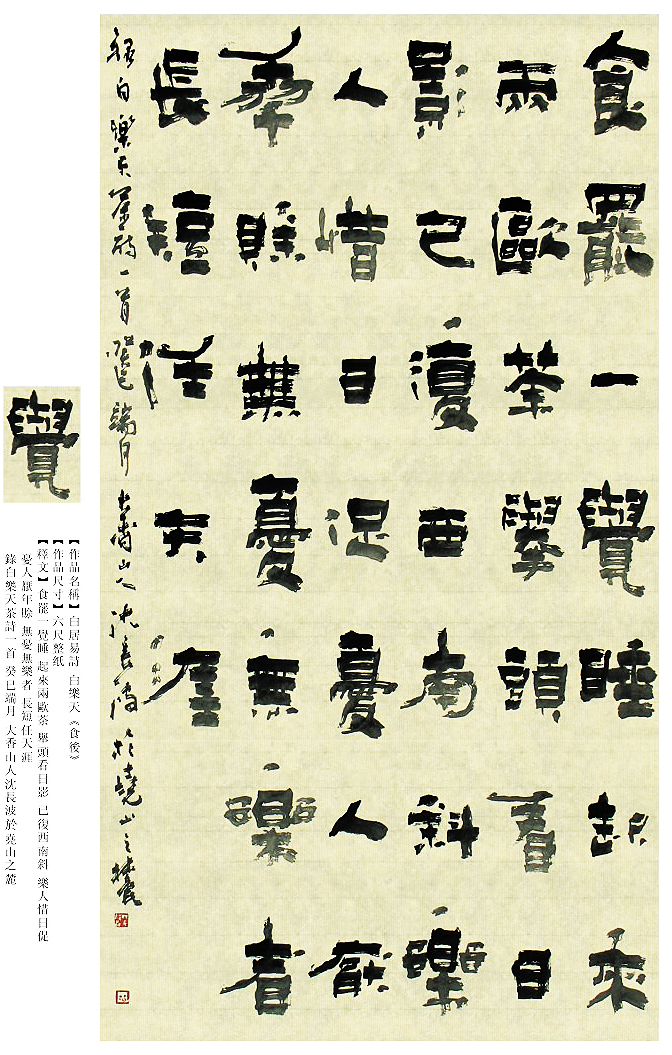 食罷一覺睡起來
兩歐茶舉頭看日
影已復西南斜樂
人惜日促憂人厭
年賒無憂無樂者
長短任天涯
錄白樂天茶詩一首癸巳端月大香山人沈長波於堯山之麓
覺
【作品名稱】白居易詩 白樂天《食後》
【作品尺寸】六尺整纸
【釋文】食罷一覺睡 起來兩歐茶 舉頭看日影 已復西南斜 樂人惜日促
憂人厭年賒 無憂無樂者 長短任天涯
錄白樂天茶詩一首 癸巳端月 大香山人沈長波於堯山之麓